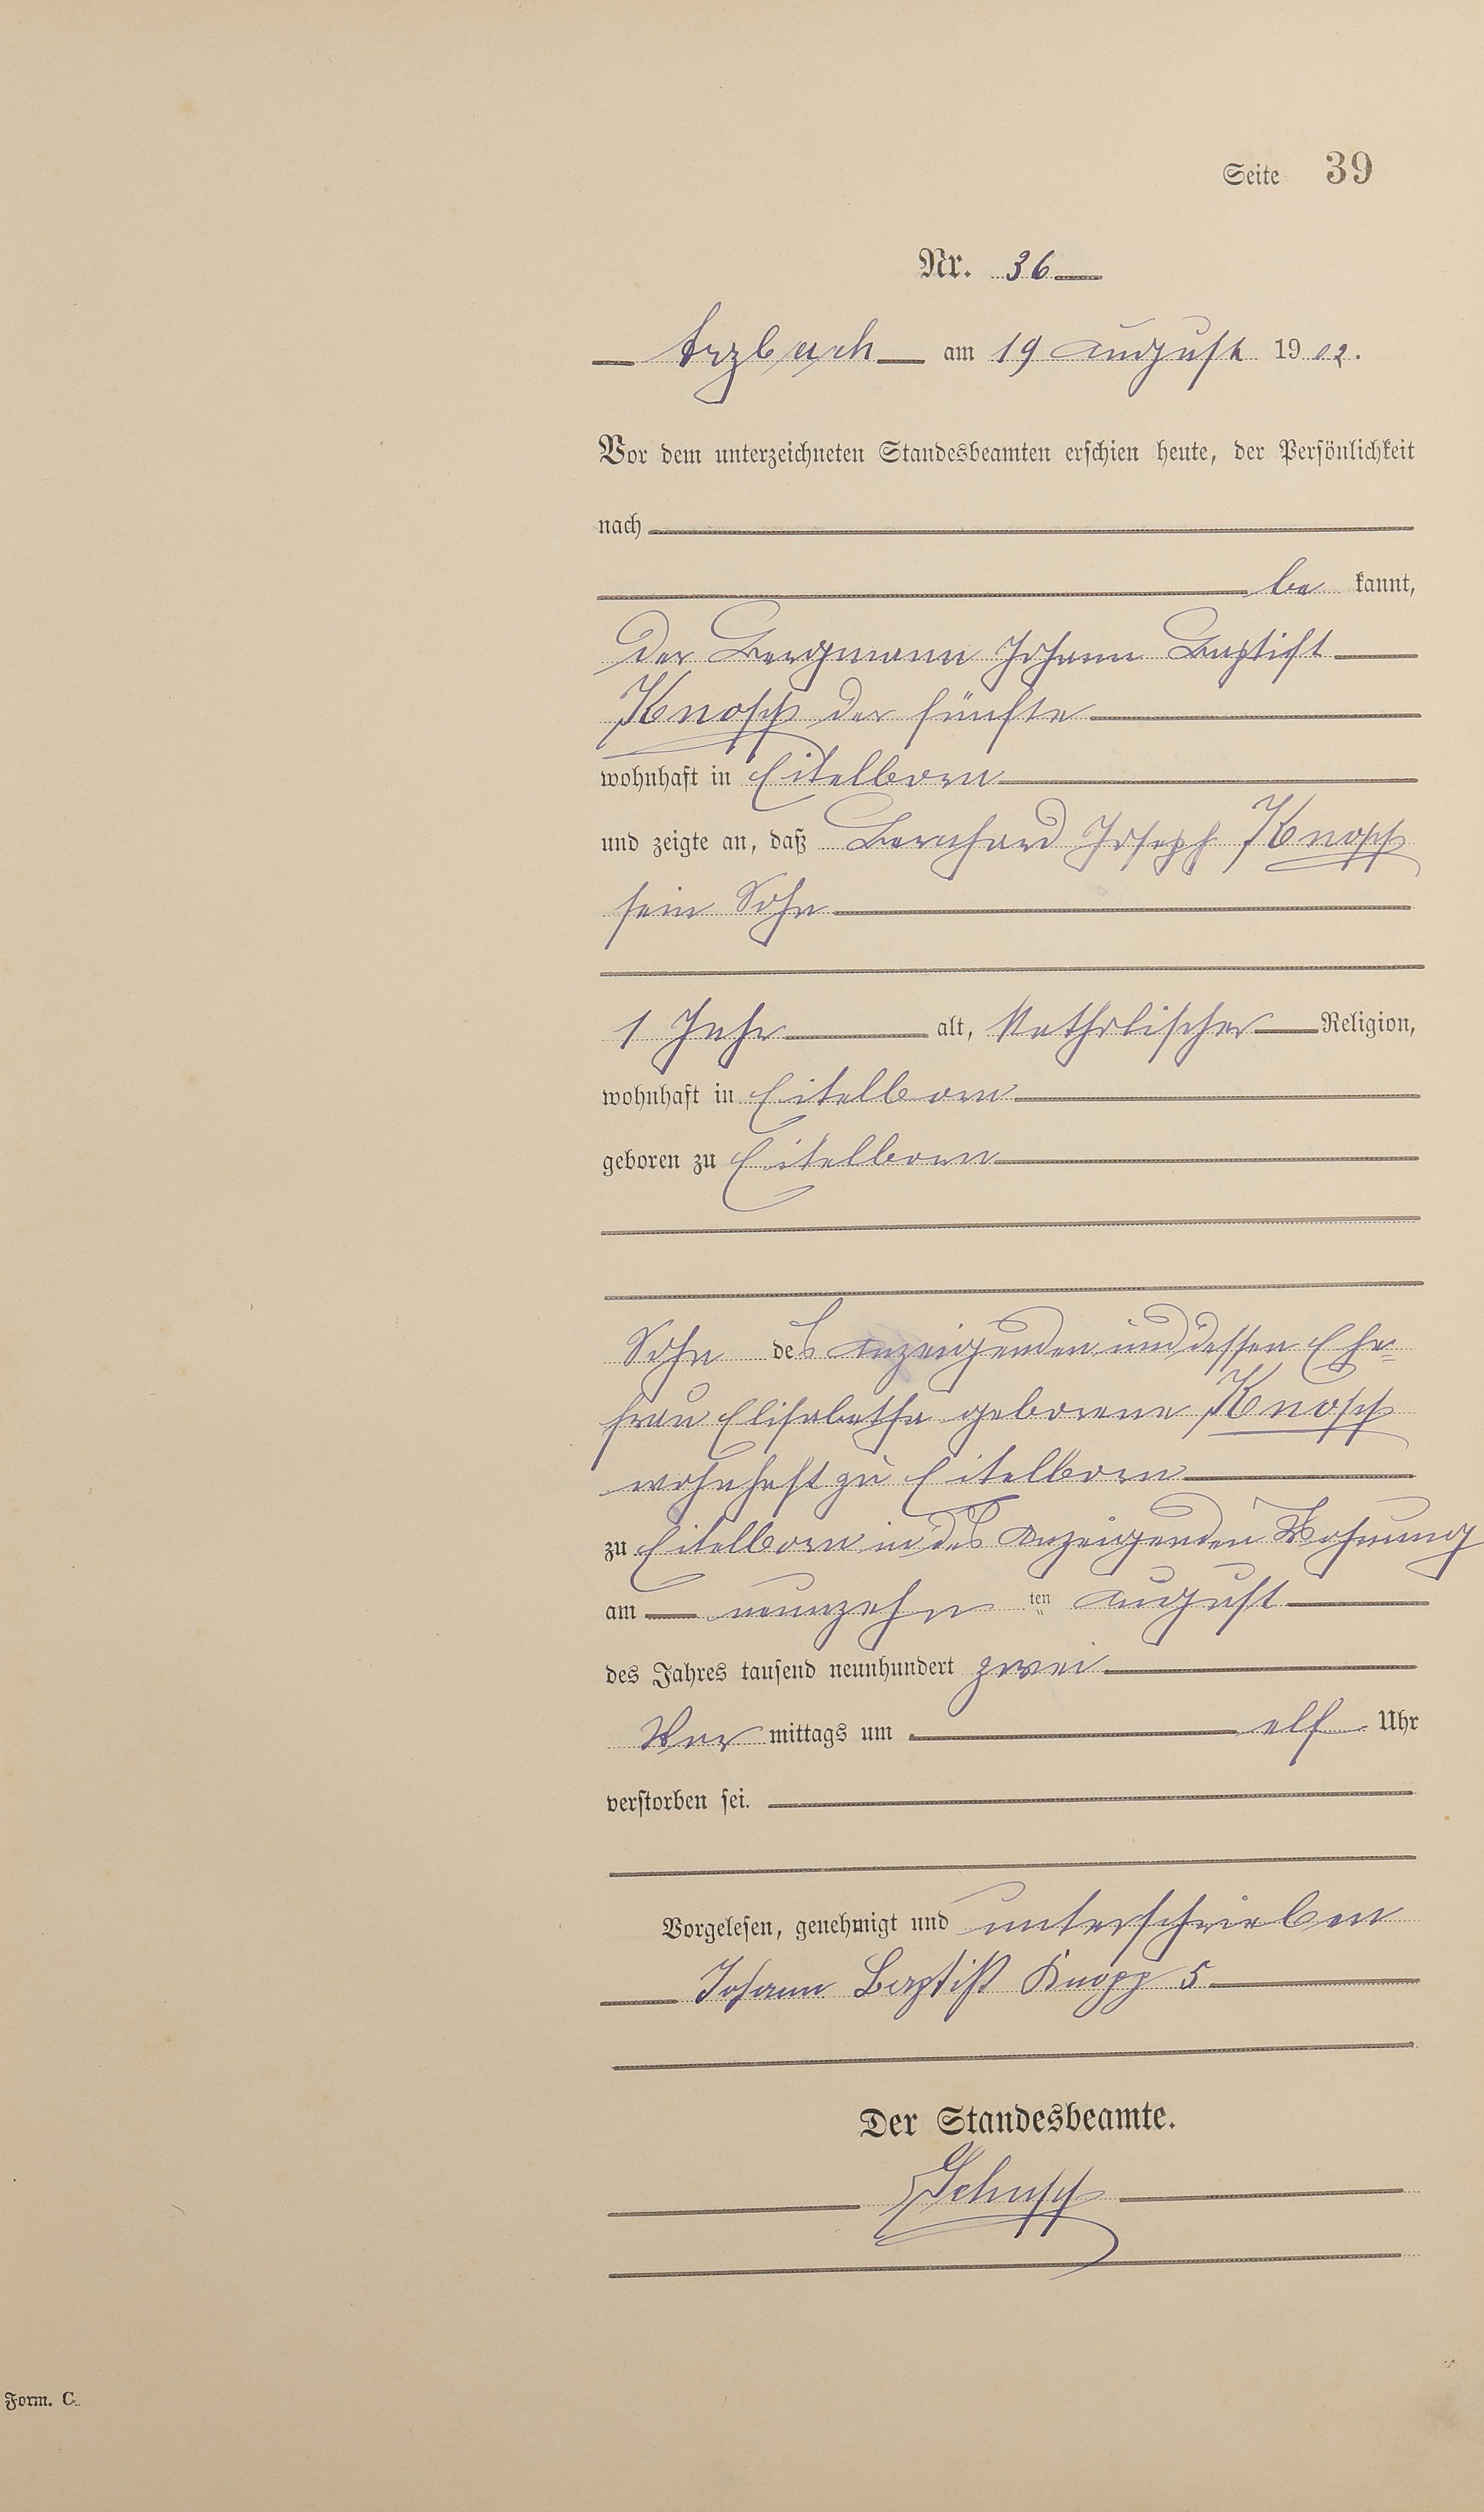 Seite 39
Nr. 36
Arzbach am 19 August 1902.
Vor dem unterzeichneten Standesbeamten erschien heute, der Persönlichkeit
nach
be kannt,
der Bergmann Johann Baptist
Knopp der fünfte
wohnhaft in Eitelborn
und zeigte an, daß Bernhard Joseph Knopp
sein Sohn
1 Jahr alt, Katholischer Religion,
wohnhaft in Eitelborn
geboren zu Eitelborn
Sohn des Anzeigenden und dessen Ehe=
frau Elisabetha geborene Knopp
wohnhaft zu Eitelborn
zu Eitelborn in des Anzeigenden Wohnung
am neunzehn ten August
des Jahres tausend neunhundert zwei
Vor mittags um elf Uhr
verstorben sei.
Vorgelesen, genehmigt und unterschrieben
Johann Baptist Knopp 5
Der Standesbeamte.
Form. C.